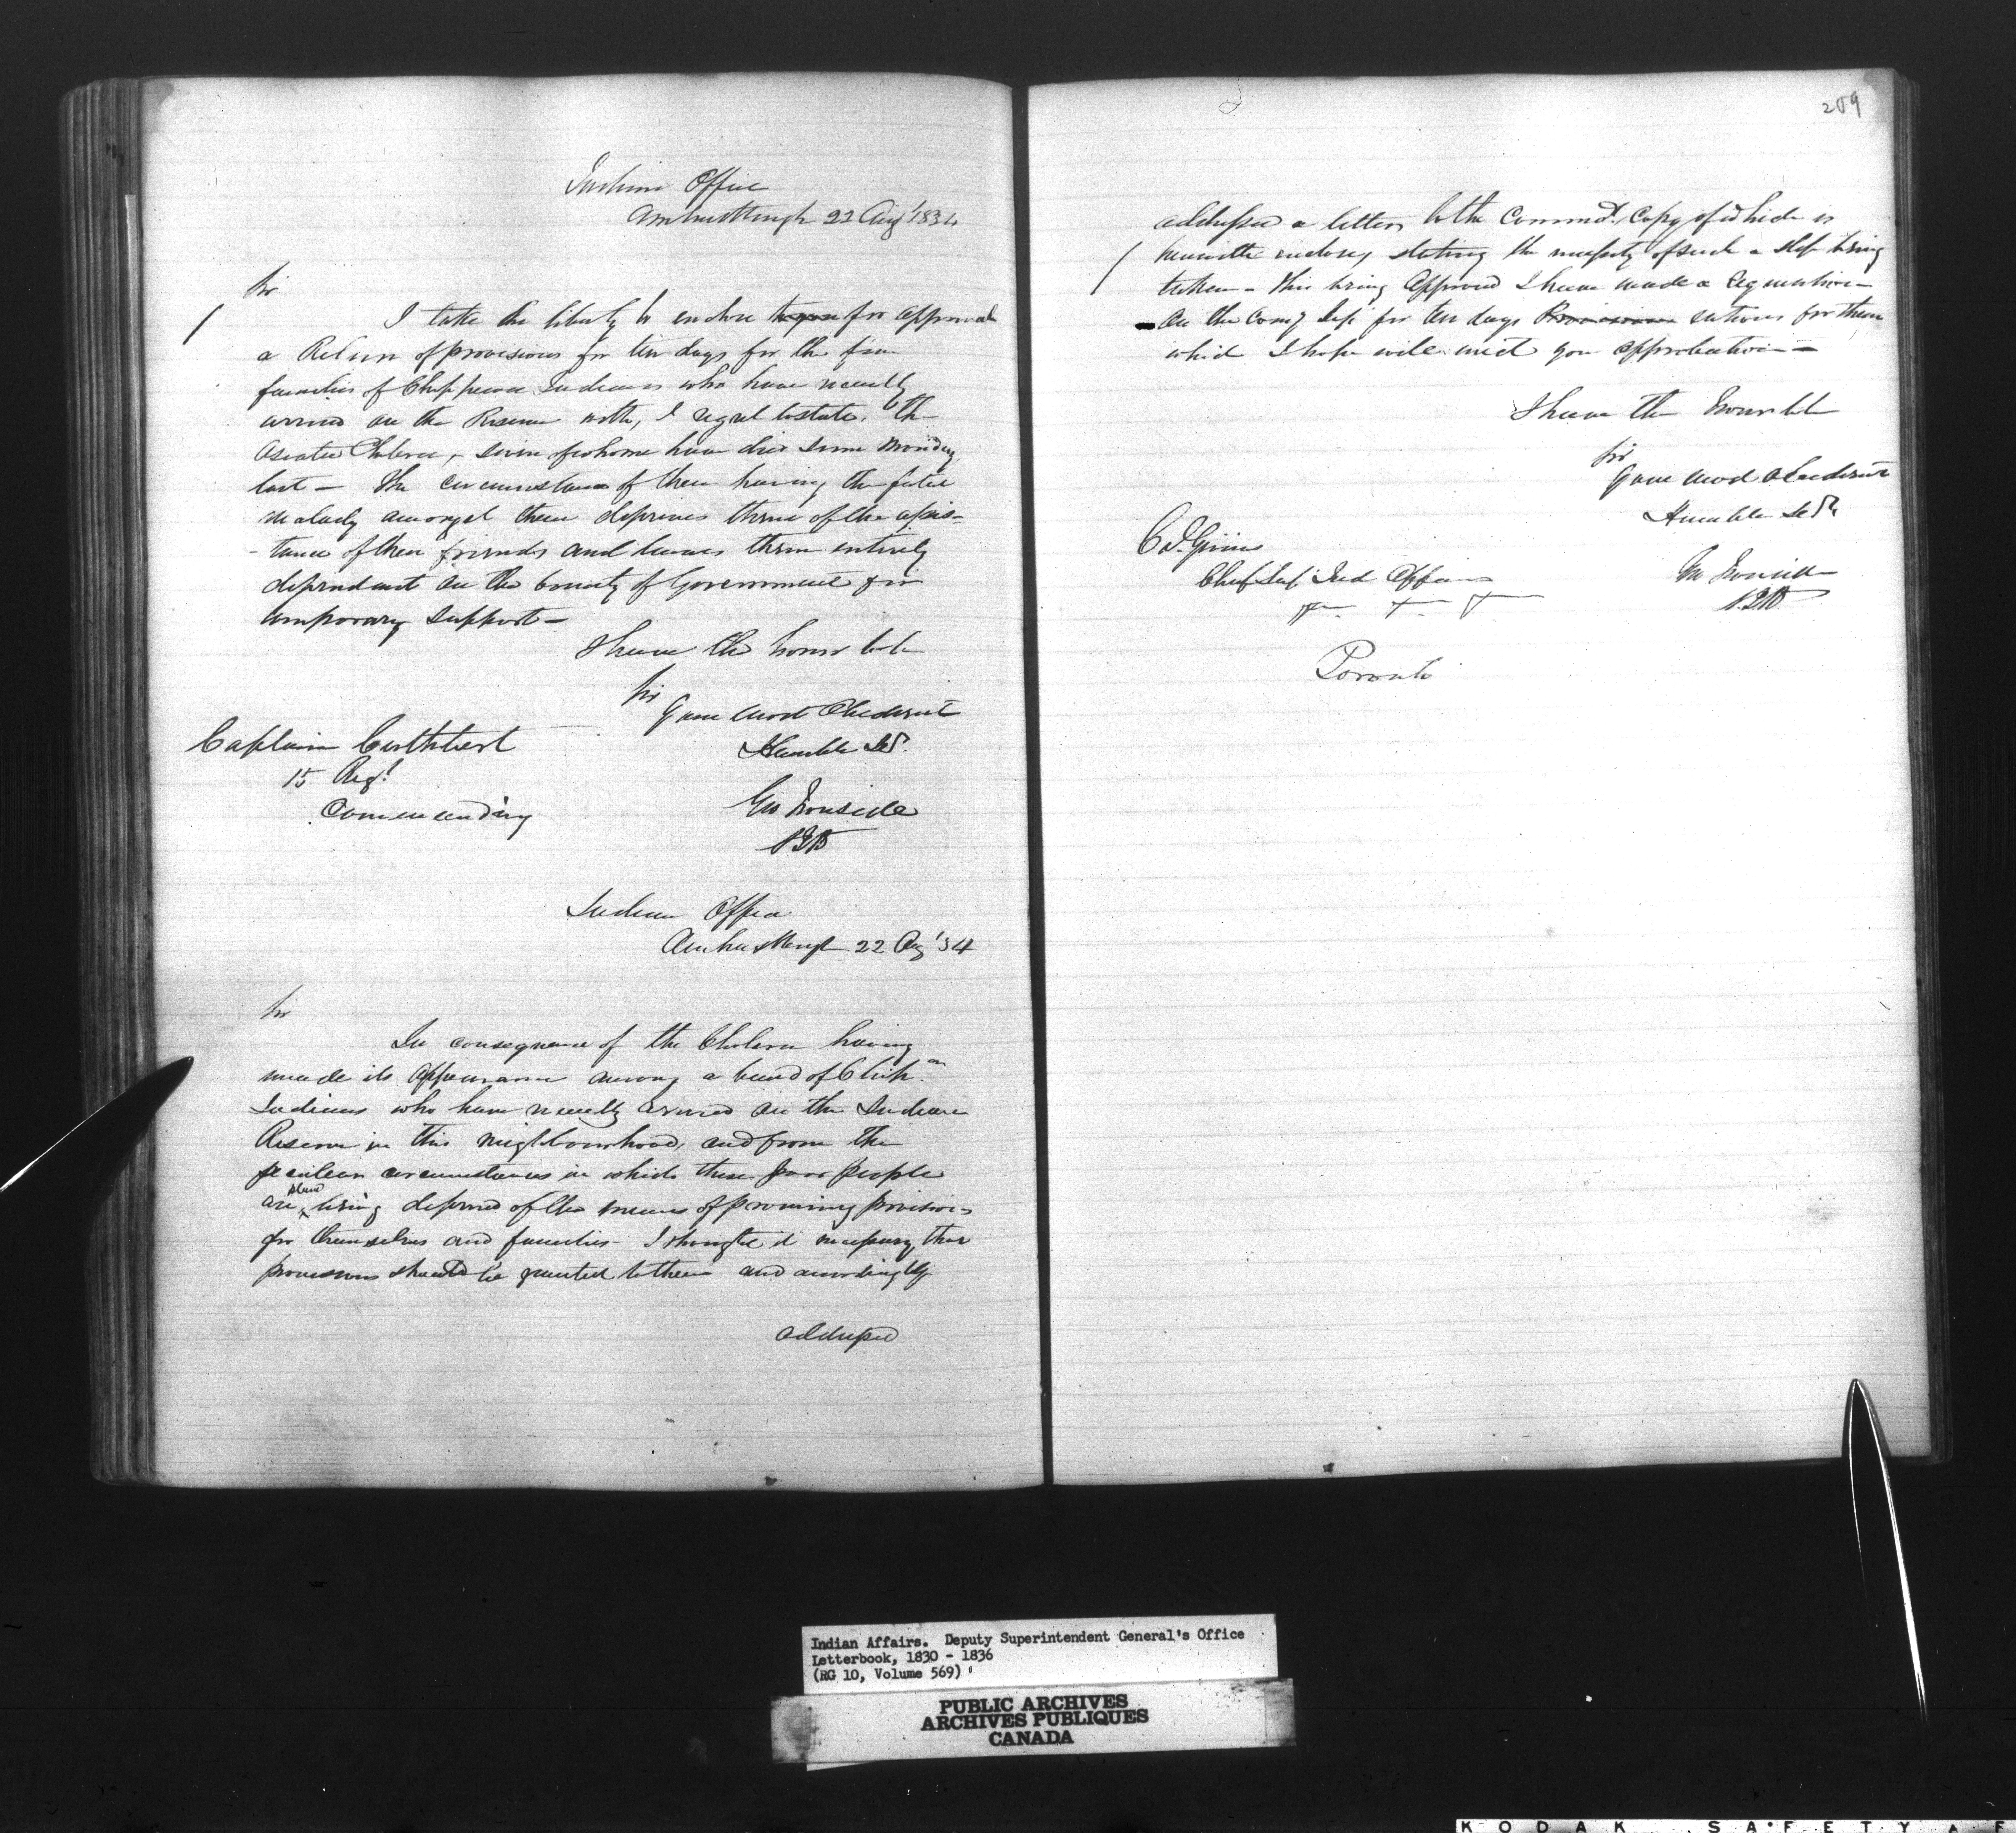 Indian Office
Amherstburgh 22 Aug' 1834
Sir
I take the liberty to enclose for approval
a Return of provisions for ten days for the
families of Chippewa Indians who have recently
arrived on the Reserve with, I regret to state, the
Asiatic Cholera, seven of whome have died since Monday
last — The circumstance of them having the fatal
malady amongst them deprives them of the assis-
-tance of their friends and leaves them entirely
dependant on the bounty of Government for
temporary support —
I have the honor to be
Sir
Your most Obedient
Humble Sert.
Captain Cuthbert
15 Regt.
Commanding
Geo Ironside
Indian Office
Amherstburgh 22 Aug '34
Sir
In consequence of the Cholera having
made its appearance among a band of Chip.an
Indians who have recently arrived on the Indian
Reserve in this neighbourhood, and from the
peculiar circumstances in which these poor people
are placed being deprived of the means of procuring provisions
for themselves and families — I thought it necessary that
provisions should be granted to them and accordingly
addressed
209
addressed a letter to the Commdt. Copy of which is
herewith enclosed stating the necessity of such a step being
taken — this being approved I have made a requisition
on the Comy Dep for ten days Provisions rations for them
which I hope will meet your approbation —
I have the honor to be
Sir
Your most Obedient
Humble Sert.
Col. Givins
Chief Sup Ind Affairs
Geo Ironside
Toronto
Indian Affairs. Deputy Superintendent General's Office
Letterbook, 1830 - 1836
(RG 10, Volume 569)
PUBLIC ARCHIVES
ARCHIVES PUBLIQUES
CANADA
KODAK SAFETY